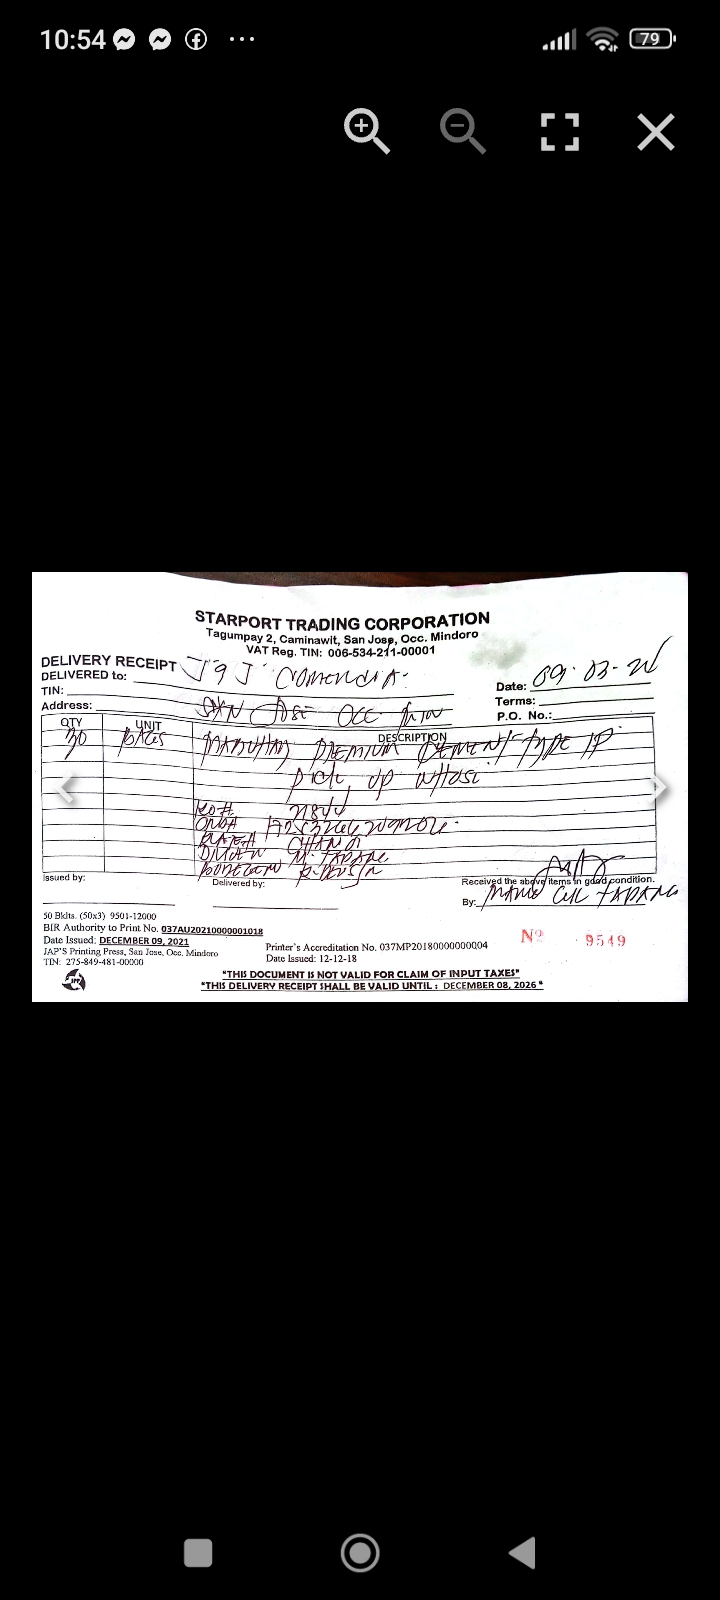 10:54
79
STARPORT TRADING CORPORATION
Tagumpay 2, Caminawit, San Jose, Occ. Mindoro
VAT Reg. TIN: 006-534-211-00001
DELIVERY RECEIPT
DELIVERED to: J & J Comendia
TIN:
Address: San Jose Occ Min
Date: 09-03-
Terms:
P.O. No.:
QTY UNIT DESCRIPTION
30 BAGS PREMIUM CEMENT TYPE 1P
pick up
2184
PLATE#
M. TAPANG
Issued by:
Delivered by:
Received the above items in good condition.
By: TAPANG
50 Bklts. (50x3) 9501-12000
BIR Authority to Print No. 037AU20210000001018
Date Issued: DECEMBER 09, 2021
JAP'S Printing Press, San Jose, Occ. Mindoro
TIN: 275-849-481-00000
Printer's Accreditation No. 037MP20180000000004
Date Issued: 12-12-18
Nº 9549
"THIS DOCUMENT IS NOT VALID FOR CLAIM OF INPUT TAXES"
"THIS DELIVERY RECEIPT SHALL BE VALID UNTIL : DECEMBER 08, 2026 "